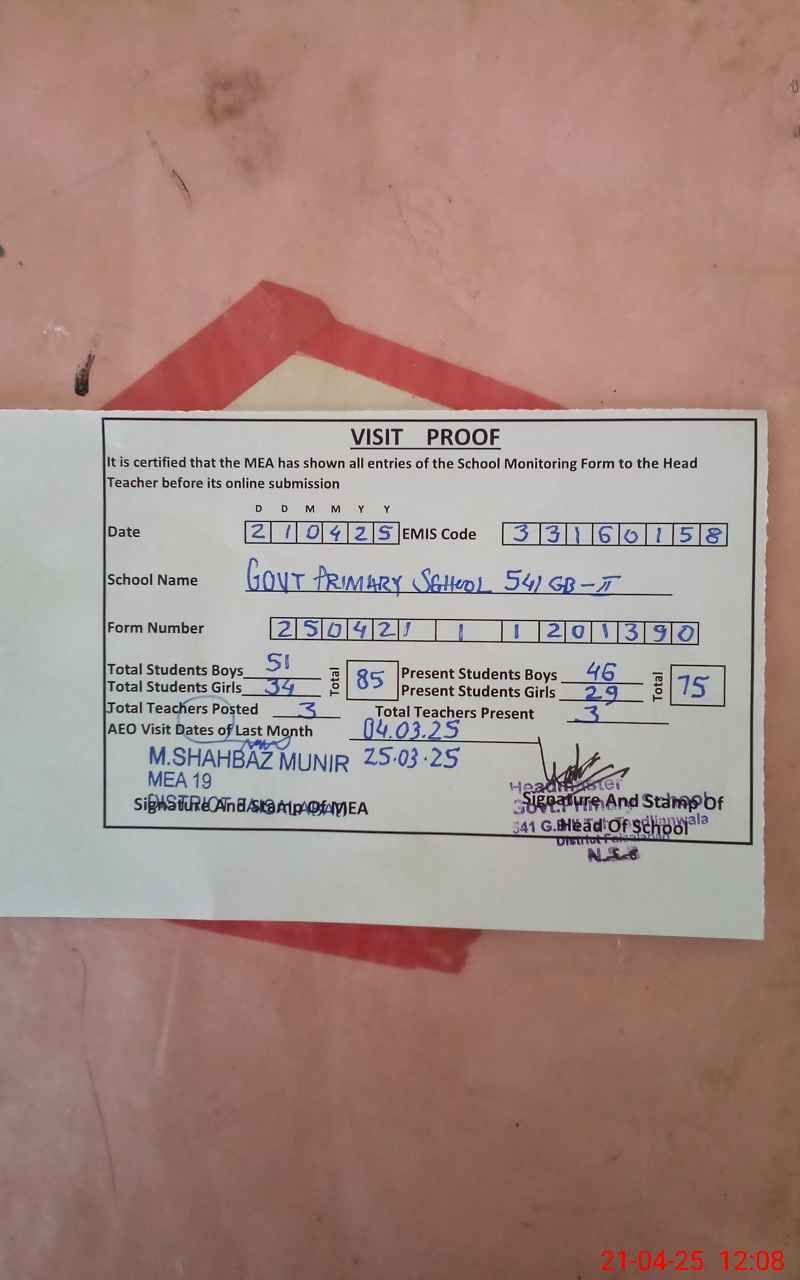 VISIT PROOF
It is certified that the MEA has shown all entries of the School Monitoring Form to the Head
Teacher before its online submission
D D M M Y Y
Date 2 1 0 4 2 5 EMIS Code 3 3 1 6 0 1 5 8
School Name GOVT PRIMARY SCHOOL 541 GB-II
Form Number 2 5 0 4 2 1 1 1 2 0 1 3 9 0
Total Students Boys 51 Total 85 Present Students Boys 46 Total 75
Total Students Girls 34 Present Students Girls 29
Total Teachers Posted 3 Total Teachers Present 3
AEO Visit Dates of Last Month 04.03.25
25.03.25
M.SHAHBAZ MUNIR
MEA 19
DISTRICT
Signature And Stamp Of MEA
Headmaster
Govt. Primary School
Signature And Stamp Of
541 G.B
Head Of School
District Faisalabad
21-04-25 12:08